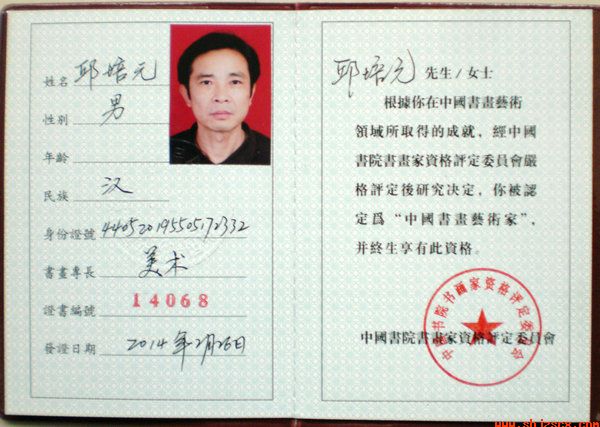 姓名 邱培元
性別 男
年齡
民族 汉
身份證號 440520195505172332
書畫專長 美术
證書編號 14068
發證日期 2014年2月26日
邱培元 先生/女士
根據你在中國書畫藝術
領域所取得的成就，經中國
書院書畫家資格評定委員會嚴
格評定後研究決定，你被認
定爲“中國書畫藝術家”，
并終生享有此資格。
中国书院书画家资格评定委员会
中國書院書畫家資格評定委員會